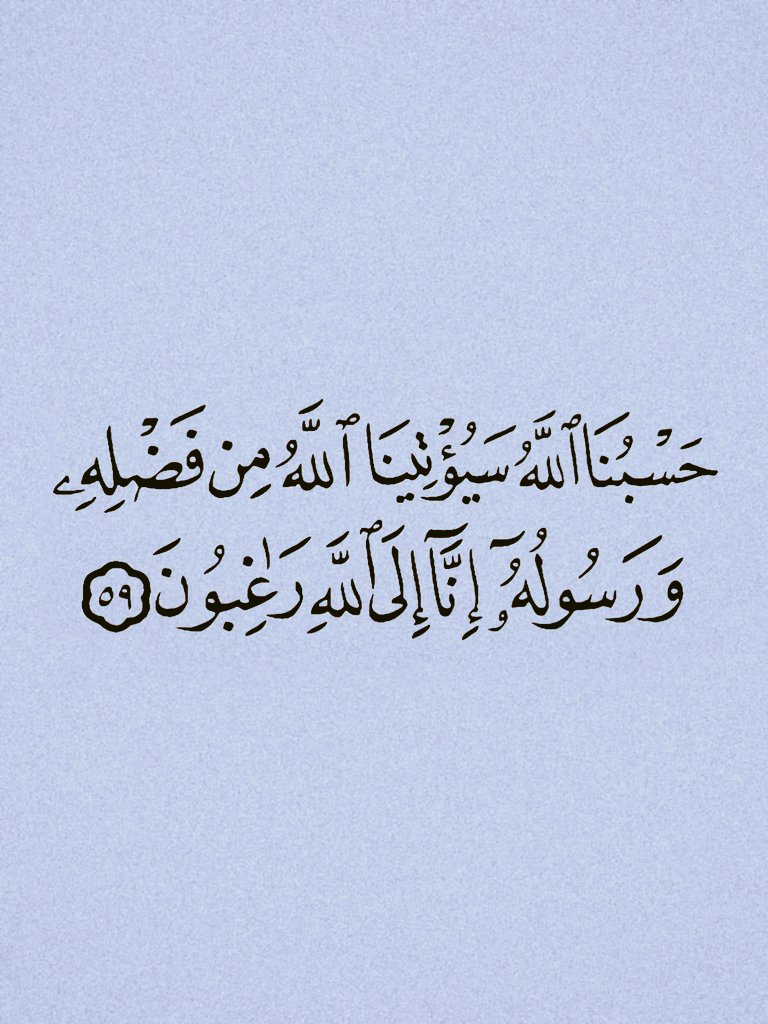 حَسْبُنَا ٱللَّهُ سَيُؤْتِينَا ٱللَّهُ مِن فَضْلِهِۦ
وَرَسُولُهُۥٓ إِنَّآ إِلَى ٱللَّهِ رَٰغِبُونَ ٥٩